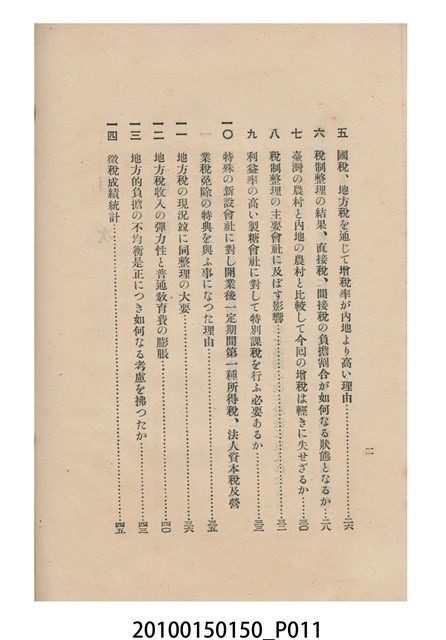 五　國稅、地方稅を通じて增稅率が內地より高い理由……二六
六　稅制整理の結果、直接稅、間接稅の負擔割合が如何なる狀態となるか……二八
七　臺灣の農村と內地の農村と比較して今回の增稅は輕きに失せざるか……三〇
八　稅制整理の主要會社に及ぼす影響……三二
九　利益率の高い製糖會社に對して特別課稅を行ふ必要あるか……三三
一〇　特殊の新設會社に對し開業後一定期間第一種所得稅、法人資本稅及營
業稅免除の特典を與ふ事になつた理由……三五
一一　地方稅の現況竝に同整理の大要……三六
一二　地方稅收入の彈力性と普通敎育費の膨脹……四〇
一三　地方的負擔の不均衡是正につき如何なる考慮を拂つたか……四三
一四　徵稅成績統計……四五
二
20100150150_P011